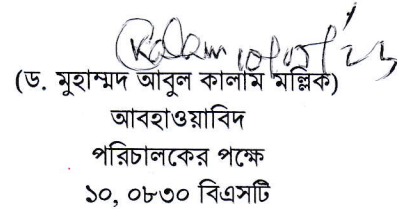 (ড. মুহাম্মদ আবুল কালাম মল্লিক)
আবহাওয়াবিদ
পরিচালকের পক্ষে
১০, ০৮৩০ বিএসটি